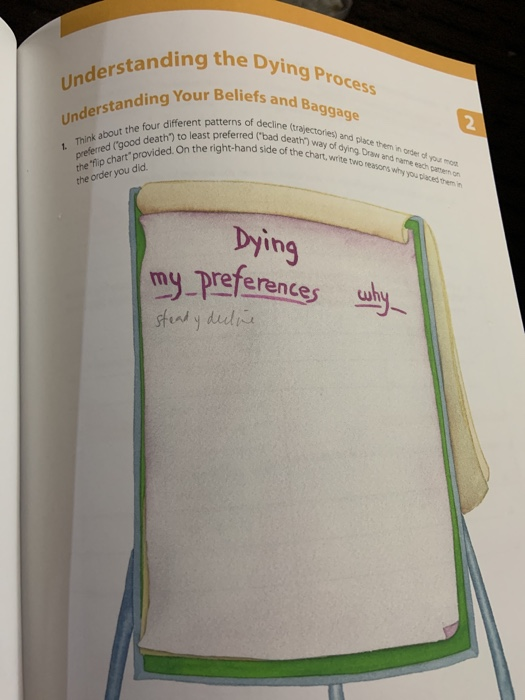 Understanding the Dying Process
Understanding Your Beliefs and Baggage
2
1. Think about the four different patterns of decline (trajectories) and place them in order of your most
preferred ("good death") to least preferred ("bad death") way of dying. Draw and name each pattern on
the "flip chart" provided. On the right-hand side of the chart, write two reasons why you placed them in
the order you did.
Dying
my preferences why
steady decline